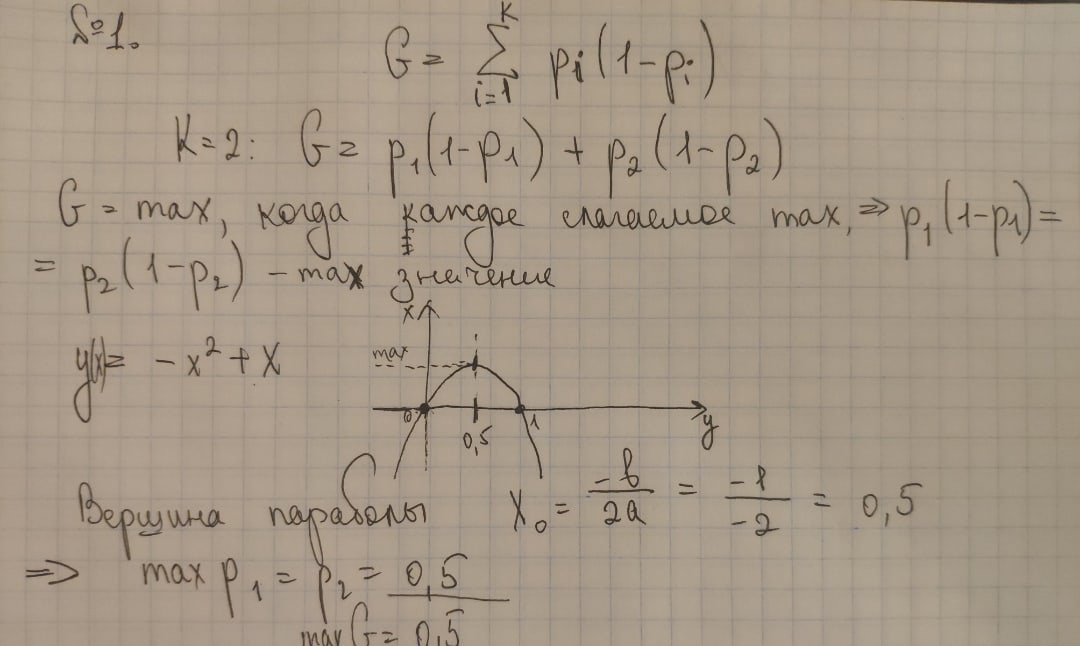 №1.
G = \sum_{i=1}^{K} p_i (1 - p_i)
K=2: G = p_1(1-p_1) + p_2(1-p_2)
G = max, когда каждое слагаемое max, ⇒ p_1(1-p_1) =
= p_2(1-p_2) - max значение
y(x)= -x^2 + x
x
max
0
0,5
1
y
Вершина параболы x_0 = \frac{-b}{2a} = \frac{-1}{-2} = 0,5
⇒ max p_1 = p_2 = 0,5
max G = 0,5